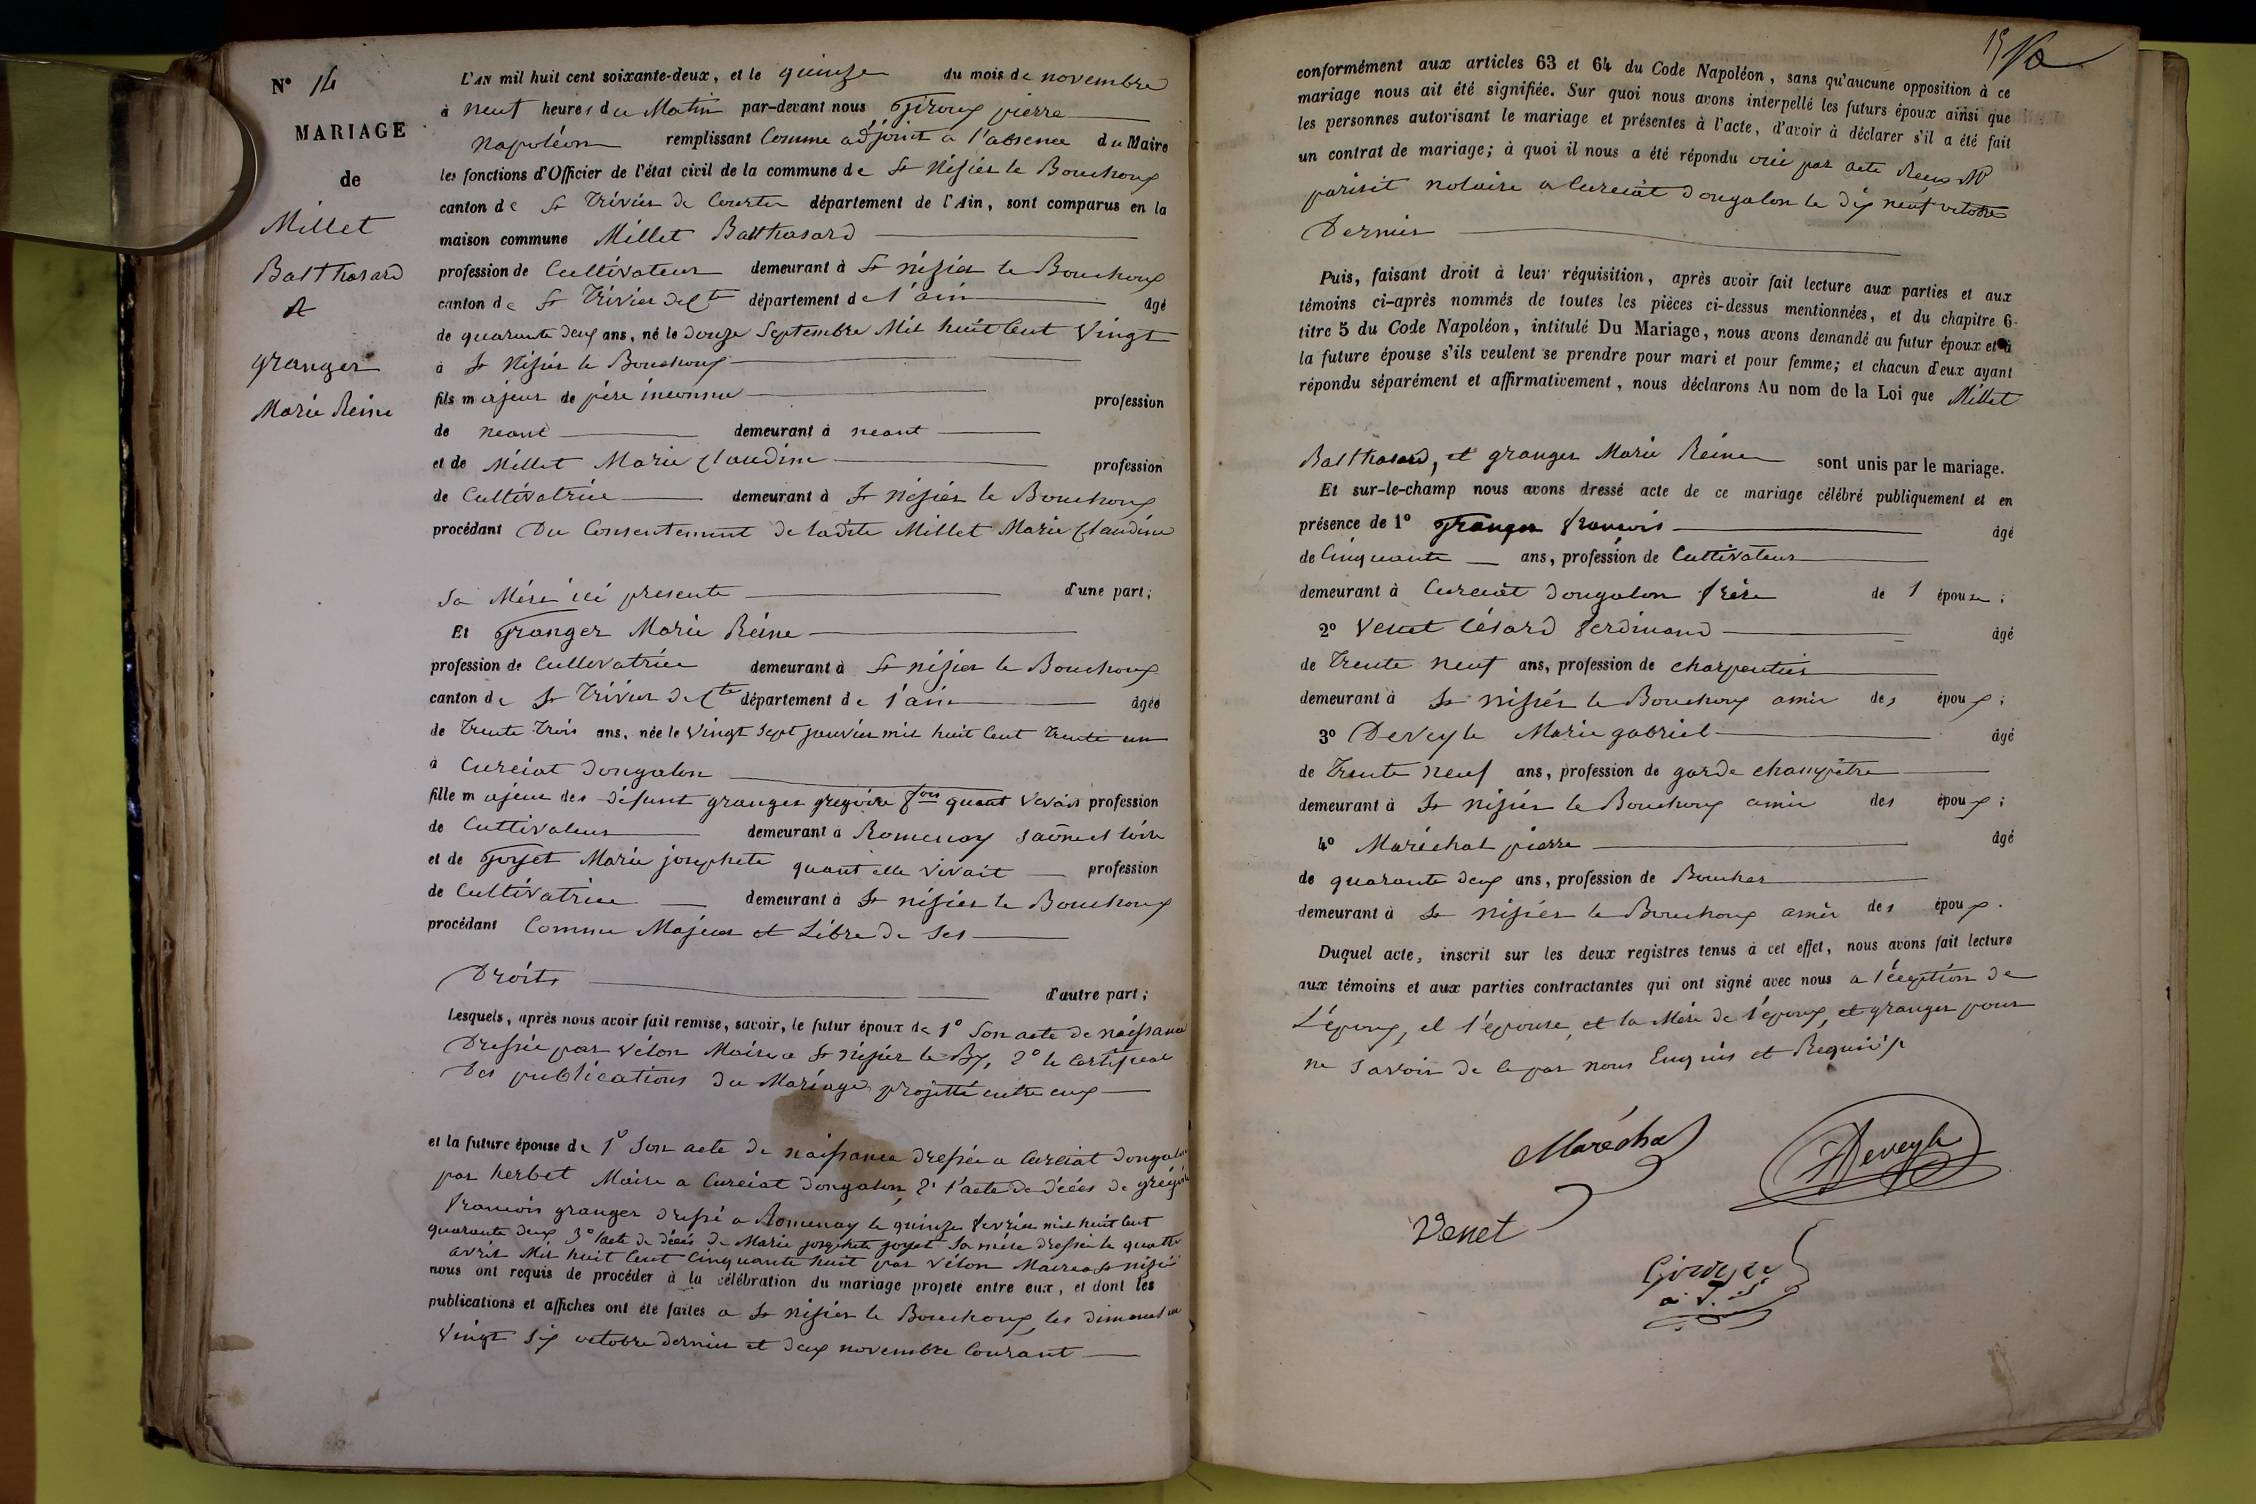 N° 14
MARIAGE
de
Millet
Balthasard
et
granger
Marie Reine
L'AN mil huit cent soixante-deux, et le quinze du mois de novembre
à neuf heures du Matin par-devant nous Giroux pierre
Napoléon remplissant Comme adjoint a l'absence du Maire
les fonctions d'Officier de l'état civil de la commune de St Nisier le Bouchoux
canton de St Trivier de Courte département de l'Ain, sont comparus en la
maison commune Millet Balthasard
profession de Cultivateur demeurant à St nisier le Bouchoux
canton de St Trivier de Cte département de l'ain âgé
de quarante deux ans, né le Douze Septembre Mil huit Cent Vingt
à St Nisier le Bouchoux
fils majeur de père inconnu profession
de neant demeurant à neant
et de Millet Marie Claudine profession
de Cultivatrice demeurant à St Nisier le Bouchoux
procédant Du Consentement de ladite Millet Marie Claudine
Sa Mére ici presente d'une part;
Et Granger Marie Reine
profession de Cultivatrice demeurant à St nisier le Bouchoux
canton de St Trivier de Cte département de l'ain âgée
de Trente Trois ans, née le Vingt Sept janvier mil huit Cent Trente un
à Curciat dongalon
fille majeur des défunt granger gregoire fois quant Vivais profession
de Cultivateur demeurant à Romenay saône et loire
et de Goyet Marie josephete quant elle Vivait profession
de Cultivatrice demeurant à St nisier le Bouchoux
procédant Comme Majeur et Libre de Ses
Droits d'autre part;
Lesquels, après nous avoir fait remise, savoir, le futur époux de 1° Son acte de naissance
Dressée par Vélon Maire a St nisier le Bx, 2° le Certificat
Des publications du Mariage projetté entre eux
et la future épouse de 1° Son acte de naissance dressée a Curciat dongalon
par herbet Maire a Curciat dongalon, 2° l'acte de décés de grégoire
francois granger dressé a Romenay le quinze fevrier mil huit Cent
quarante deux 3° l'acte de décés de Marie josephete goyet Sa mére dressée le quatre
avril Mil huit Cent Cinquante huit par Vélon Maire a St nisié
nous ont requis de procéder à la célébration du mariage projeté entre eux, et dont les
publications et affiches ont été faites a St nisier le Bouchoux, les dimanches
Vingt Six octobre dernier et deux novembre Courant
15
conformément aux articles 63 et 64 du Code Napoléon, sans qu'aucune opposition à ce
mariage nous ait été signifiée. Sur quoi nous avons interpellé les futurs époux ainsi que
les personnes autorisant le mariage et présentes à l'acte, d'avoir à déclarer s'il a été fait
un contrat de mariage; à quoi il nous a été répondu oui par acte Recu Me
parisit notaire a Curciat Dongalon le dix neuf octobre
Dernier
Puis, faisant droit à leur réquisition, après avoir fait lecture aux parties et aux
témoins ci-après nommés de toutes les pièces ci-dessus mentionnées, et du chapitre 6
titre 5 du Code Napoléon, intitulé Du Mariage, nous avons demandé au futur époux et à
la future épouse s'ils veulent se prendre pour mari et pour femme; et chacun d'eux ayant
répondu séparément et affirmativement, nous déclarons Au nom de la Loi que Millet
Balthasard, et granger Marie Reine sont unis par le mariage.
Et sur-le-champ nous avons dressé acte de ce mariage célébré publiquement et en
présence de 1° Granger francois âgé
de Cinquante ans, profession de Cultivateur
demeurant à Curciat dongalon frère de l épouse;
2° Venet Césard ferdinand âgé
de Trente neuf ans, profession de charpentier
demeurant à St nisier le Bouchoux amis des époux;
3° Deveyle Marie gabriel âgé
de Trente neuf ans, profession de garde champêtre
demeurant à St nisier le Bouchoux amis des époux;
4° Maréchal pierre âgé
de quarante deux ans, profession de Boucher
demeurant à St nisier le Bouchoux amis des époux.
Duquel acte, inscrit sur les deux registres tenus à cet effet, nous avons fait lecture
aux témoins et aux parties contractantes qui ont signé avec nous a l'éxeption de
L'époux, et l'épouse, et la Mére de l'époux, et granger pour
ne Savoir de ce par nous Enquis et Requis
Maréchal
Deveyle
Venet
Giroux